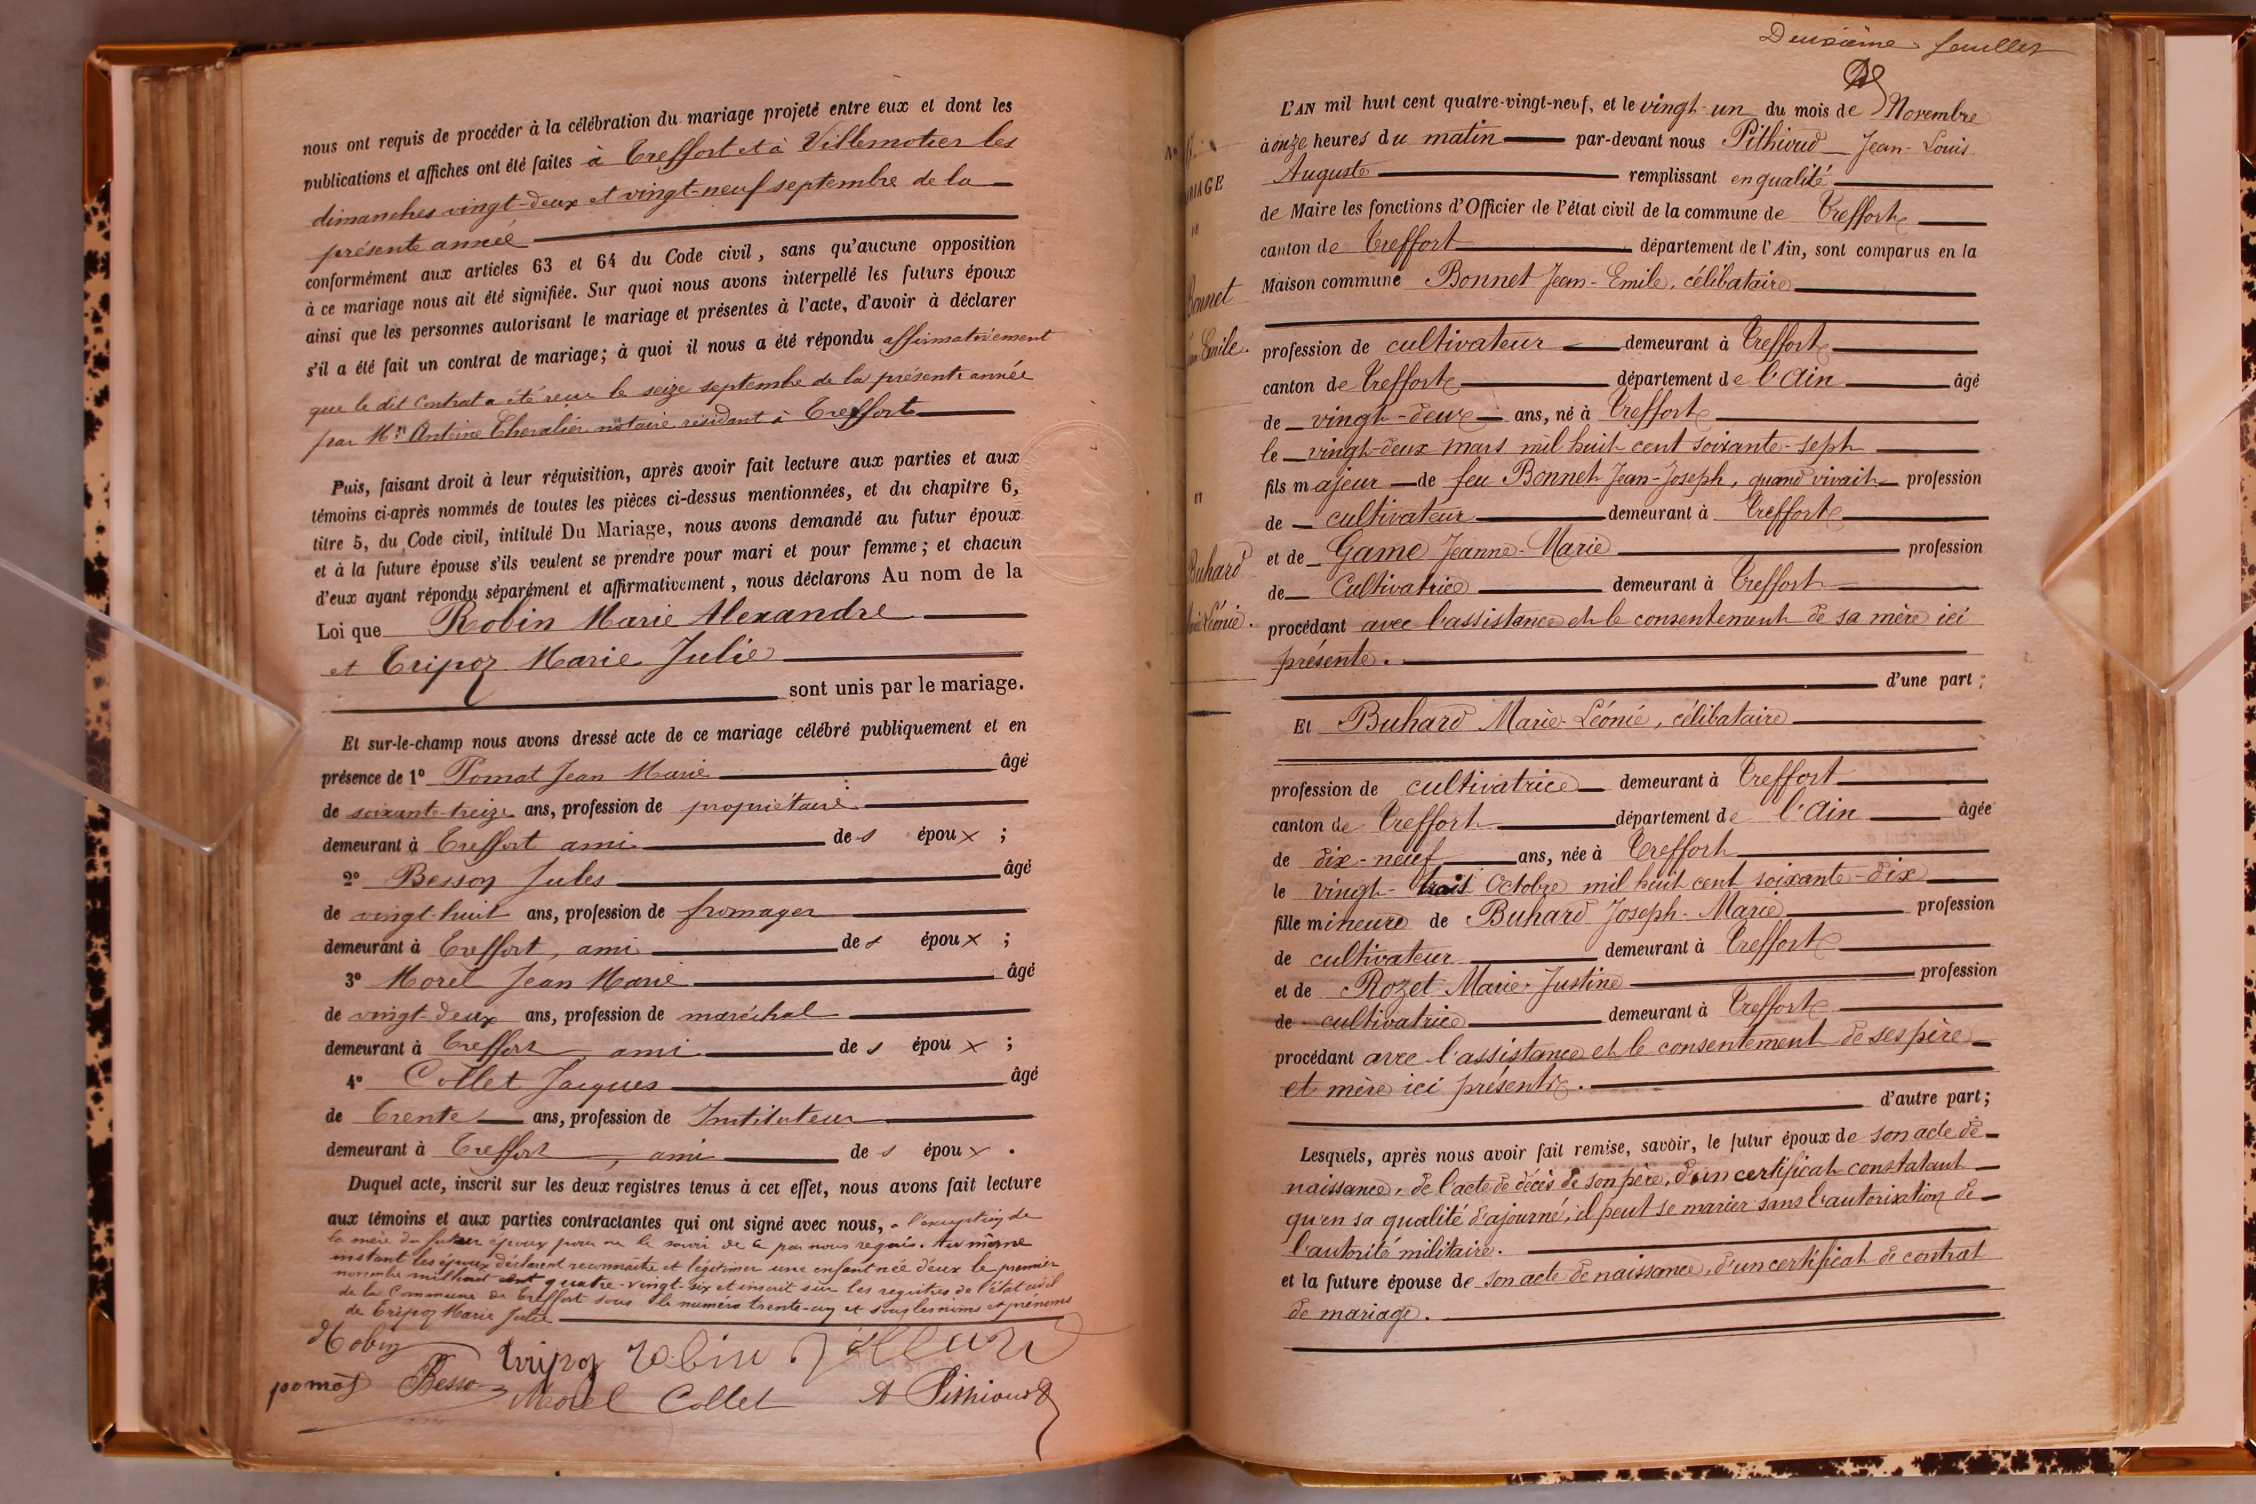 nous ont requis de procéder à la célébration du mariage projeté entre eux et dont les
publications et affiches ont été faites à Treffort et à Villemotier les
dimanches vingt-deux et vingt-neuf septembre de la
présente année
conformément aux articles 63 et 64 du Code civil, sans qu'aucune opposition
à ce mariage nous ait été signifiée. Sur quoi nous avons interpellé les futurs époux
ainsi que les personnes autorisant le mariage et présentes à l'acte, d'avoir à déclarer
s'il a été fait un contrat de mariage; à quoi il nous a été répondu affirmativement
que le dit contrat a été reçu le seize septembre de la présente année
par Mtre Antoine Chevalier notaire résidant à Treffort
Puis, faisant droit à leur réquisition, après avoir fait lecture aux parties et aux
témoins ci-après nommés de toutes les pièces ci-dessus mentionnées, et du chapitre 6,
titre 5, du Code civil, intitulé Du Mariage, nous avons demandé au futur époux
et à la future épouse s'ils veulent se prendre pour mari et pour femme; et chacun
d'eux ayant répondu séparément et affirmativement, nous déclarons Au nom de la
Loi que Robin Marie Alexandre
et Tripoz Marie Julie
sont unis par le mariage.
Et sur-le-champ nous avons dressé acte de ce mariage célébré publiquement et en
présence de 1° Pomat Jean Marie âgé
de soixante-treize ans, profession de propriétaire
demeurant à Treffort ami des époux ;
2° Besson Jules âgé
de vingt-huit ans, profession de fromager
demeurant à Treffort, ami des époux ;
3° Morel Jean Marie âgé
de vingt-deux ans, profession de maréchal
demeurant à Treffort, ami des époux ;
4° Collet Jacques âgé
de trente ans, profession de Instituteur
demeurant à Treffort, ami des époux .
Duquel acte, inscrit sur les deux registres tenus à cet effet, nous avons fait lecture
aux témoins et aux parties contractantes qui ont signé avec nous, à l'exception de
la mère du futur époux pour ne le savoir de ce par nous requis. Au même
instant les époux déclarent reconnaître et légitimer une enfant née d'eux le premier
novembre mil huit cent quatre-vingt-six et inscrit sur les registres de l'état civil
de la Commune de Treffort sous le numéro trente-un et sous les noms et prénoms
de Tripoz Marie Julie
Robin tripoz robin
pomat Besson Morel Collet A Pithioud
Deuxième feuillet
L'AN mil huit cent quatre-vingt-neuf, et le vingt-un du mois de Novembre
à onze heures du matin par-devant nous Pithioud Jean-Louis
Auguste remplissant en qualité
de Maire les fonctions d'Officier de l'état civil de la commune de Treffort
canton de Treffort département de l'Ain, sont comparus en la
Maison commune Bonnet Jean-Emile, célibataire
profession de cultivateur demeurant à Treffort
canton de Treffort département de l'Ain âgé
de vingt-deux ans, né à Treffort
le vingt-deux mars mil huit cent soixante-sept
fils majeur de feu Bonnet Jean-Joseph, quand vivait profession
de cultivateur demeurant à Treffort
et de Game Jeanne-Marie profession
de Cultivatrice demeurant à Treffort
procédant avec l'assistance et le consentement de sa mère ici
présente.
d'une part;
Et Buhard Marie-Léonie, célibataire
profession de cultivatrice demeurant à Treffort
canton de Treffort département de l'Ain âgée
de dix-neuf ans, née à Treffort
le vingt-trois Octobre mil huit cent soixante-dix
fille mineure de Buhard Joseph-Marie profession
de cultivateur demeurant à Treffort
et de Rozet Marie-Justine profession
de cultivatrice demeurant à Treffort
procédant avec l'assistance et le consentement de ses père
et mère ici présents.
d'autre part;
Lesquels, après nous avoir fait remise, savoir, le futur époux de son acte de
naissance, de l'acte de décès de son père, d'un certificat constatant
qu'en sa qualité d'ajourné, il peut se marier sans l'autorisation de
l'autorité militaire.
et la future épouse de son acte de naissance, d'un certificat de contrat
de mariage.
RIAGE
Bonnet
Emile.
Buhard
Léonie.